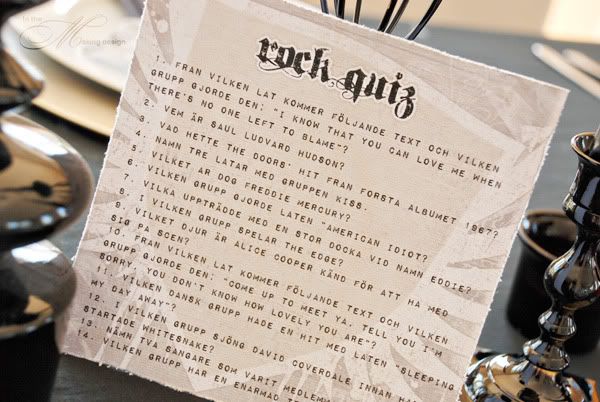 In the
Making design
rock quiz
1. FRAN VILKEN LAT KOMMER FÖLJANDE TEXT OCH VILKEN
GRUPP GJORDE DEN: "I KNOW THAT YOU CAN LOVE ME WHEN
THERE'S NO ONE LEFT TO BLAME"?
2. VEM ÄR SAUL LUDVARD HUDSON?
3. VAD HETTE THE DOORS' HIT FRAN FORSTA ALBUMET 1967?
4. NAMN TRE LATAR MED GRUPPEN KISS.
5. VILKET AR DOG FREDDIE MERCURY?
6. VILKEN GRUPP GJORDE LATEN "AMERICAN IDIOT?
7. VILKA UPPTRÄDDE MED EN STOR DOCKA VID NAMN EDDIE?
8. I VILKEN GRUPP SPELAR THE EDGE?
9. VILKET DJUR ÄR ALICE COOPER KÄND FÖR ATT HA MED
SIG PA SCEN?
10. FRAN VILKEN LAT KOMMER FÖLJANDE TEXT OCH VILKEN
GRUPP GJORDE DEN: "COME UP TO MEET YA, TELL YOU I'M
SORRY, YOU DON'T KNOW HOW LOVELY YOU ARE"?
11. VILKEN DANSK GRUPP HADE EN HIT MED LATEN "SLEEPING
MY DAY AWAY"?
12. I VILKEN GRUPP SJÖNG DAVID COVERDALE INNAN HAN
STARTADE WHITESNAKE?
13. NÄMN TVA SANGARE SOM VARIT MEDLEM
14. VILKEN GRUPP HAR EN ENARMAD